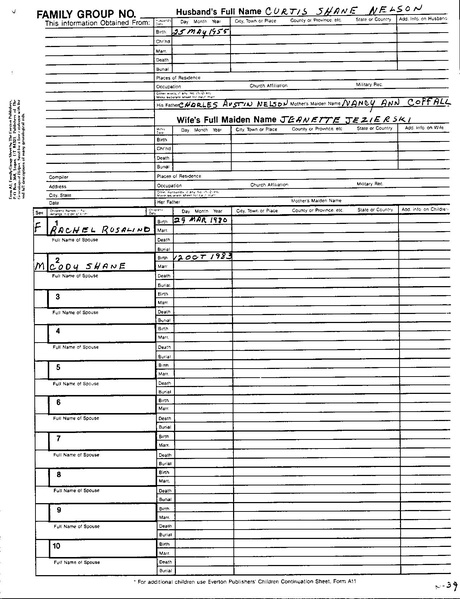 FAMILY GROUP NO.
This Information Obtained From:
Husband's Full Name CURTIS SHANE NELSON
Day Month Year City, Town or Place County or Province, etc. State or Country Add. Info. on Husband
Birth 25 MAY 1955
Chr'nd
Marr.
Death
Burial
Places of Residence
Occupation Church Affiliation Military Rec.
His Father CHARLES AUSTIN NELSON Mother's Maiden Name NANCY ANN COFFALL
Wife's Full Maiden Name JEANETTE JEZIERSKI
Day Month Year City, Town or Place County or Province, etc. State or Country Add. Info. on Wife
Birth
Chr'nd
Death
Burial
Compiler Places of Residence
Address Occupation Church Affiliation Military Rec.
City, State
Date Her Father Mother's Maiden Name
Sex Day Month Year City, Town or Place County or Province, etc. State or Country Add. Info. on Children
1 Birth 29 MAR 1980
F RACHEL ROSALIND Marr.
Full Name of Spouse Death
Burial
2 Birth 12 OCT 1983
M CODY SHANE Marr.
Full Name of Spouse Death
Burial
3 Birth
Marr.
Full Name of Spouse Death
Burial
4 Birth
Marr.
Full Name of Spouse Death
Burial
5 Birth
Marr.
Full Name of Spouse Death
Burial
6 Birth
Marr.
Full Name of Spouse Death
Burial
7 Birth
Marr.
Full Name of Spouse Death
Burial
8 Birth
Marr.
Full Name of Spouse Death
Burial
9 Birth
Marr.
Full Name of Spouse Death
Burial
10 Birth
Marr.
Full Name of Spouse Death
Burial
* For additional children use Everton Publishers' Children Continuation Sheet, Form A11
39